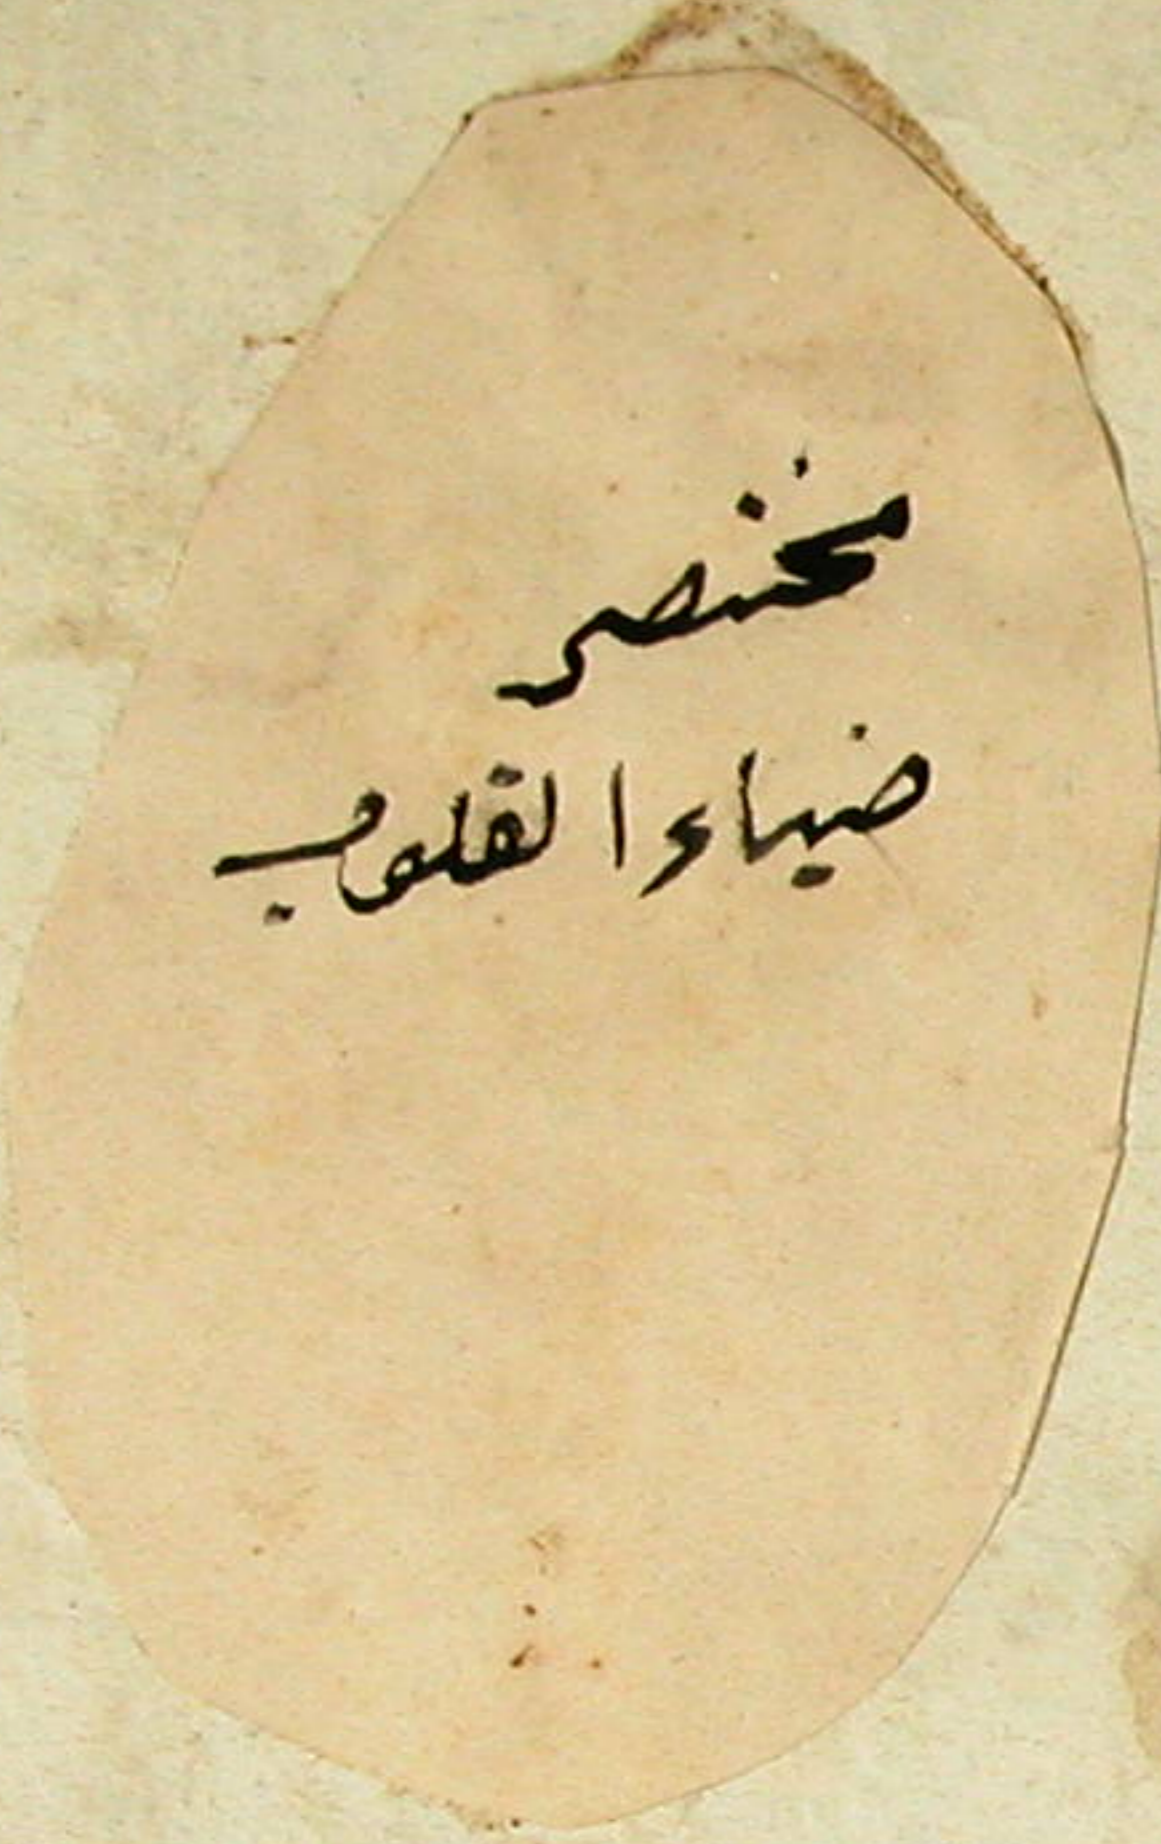 مختصر
ضياء القلوب